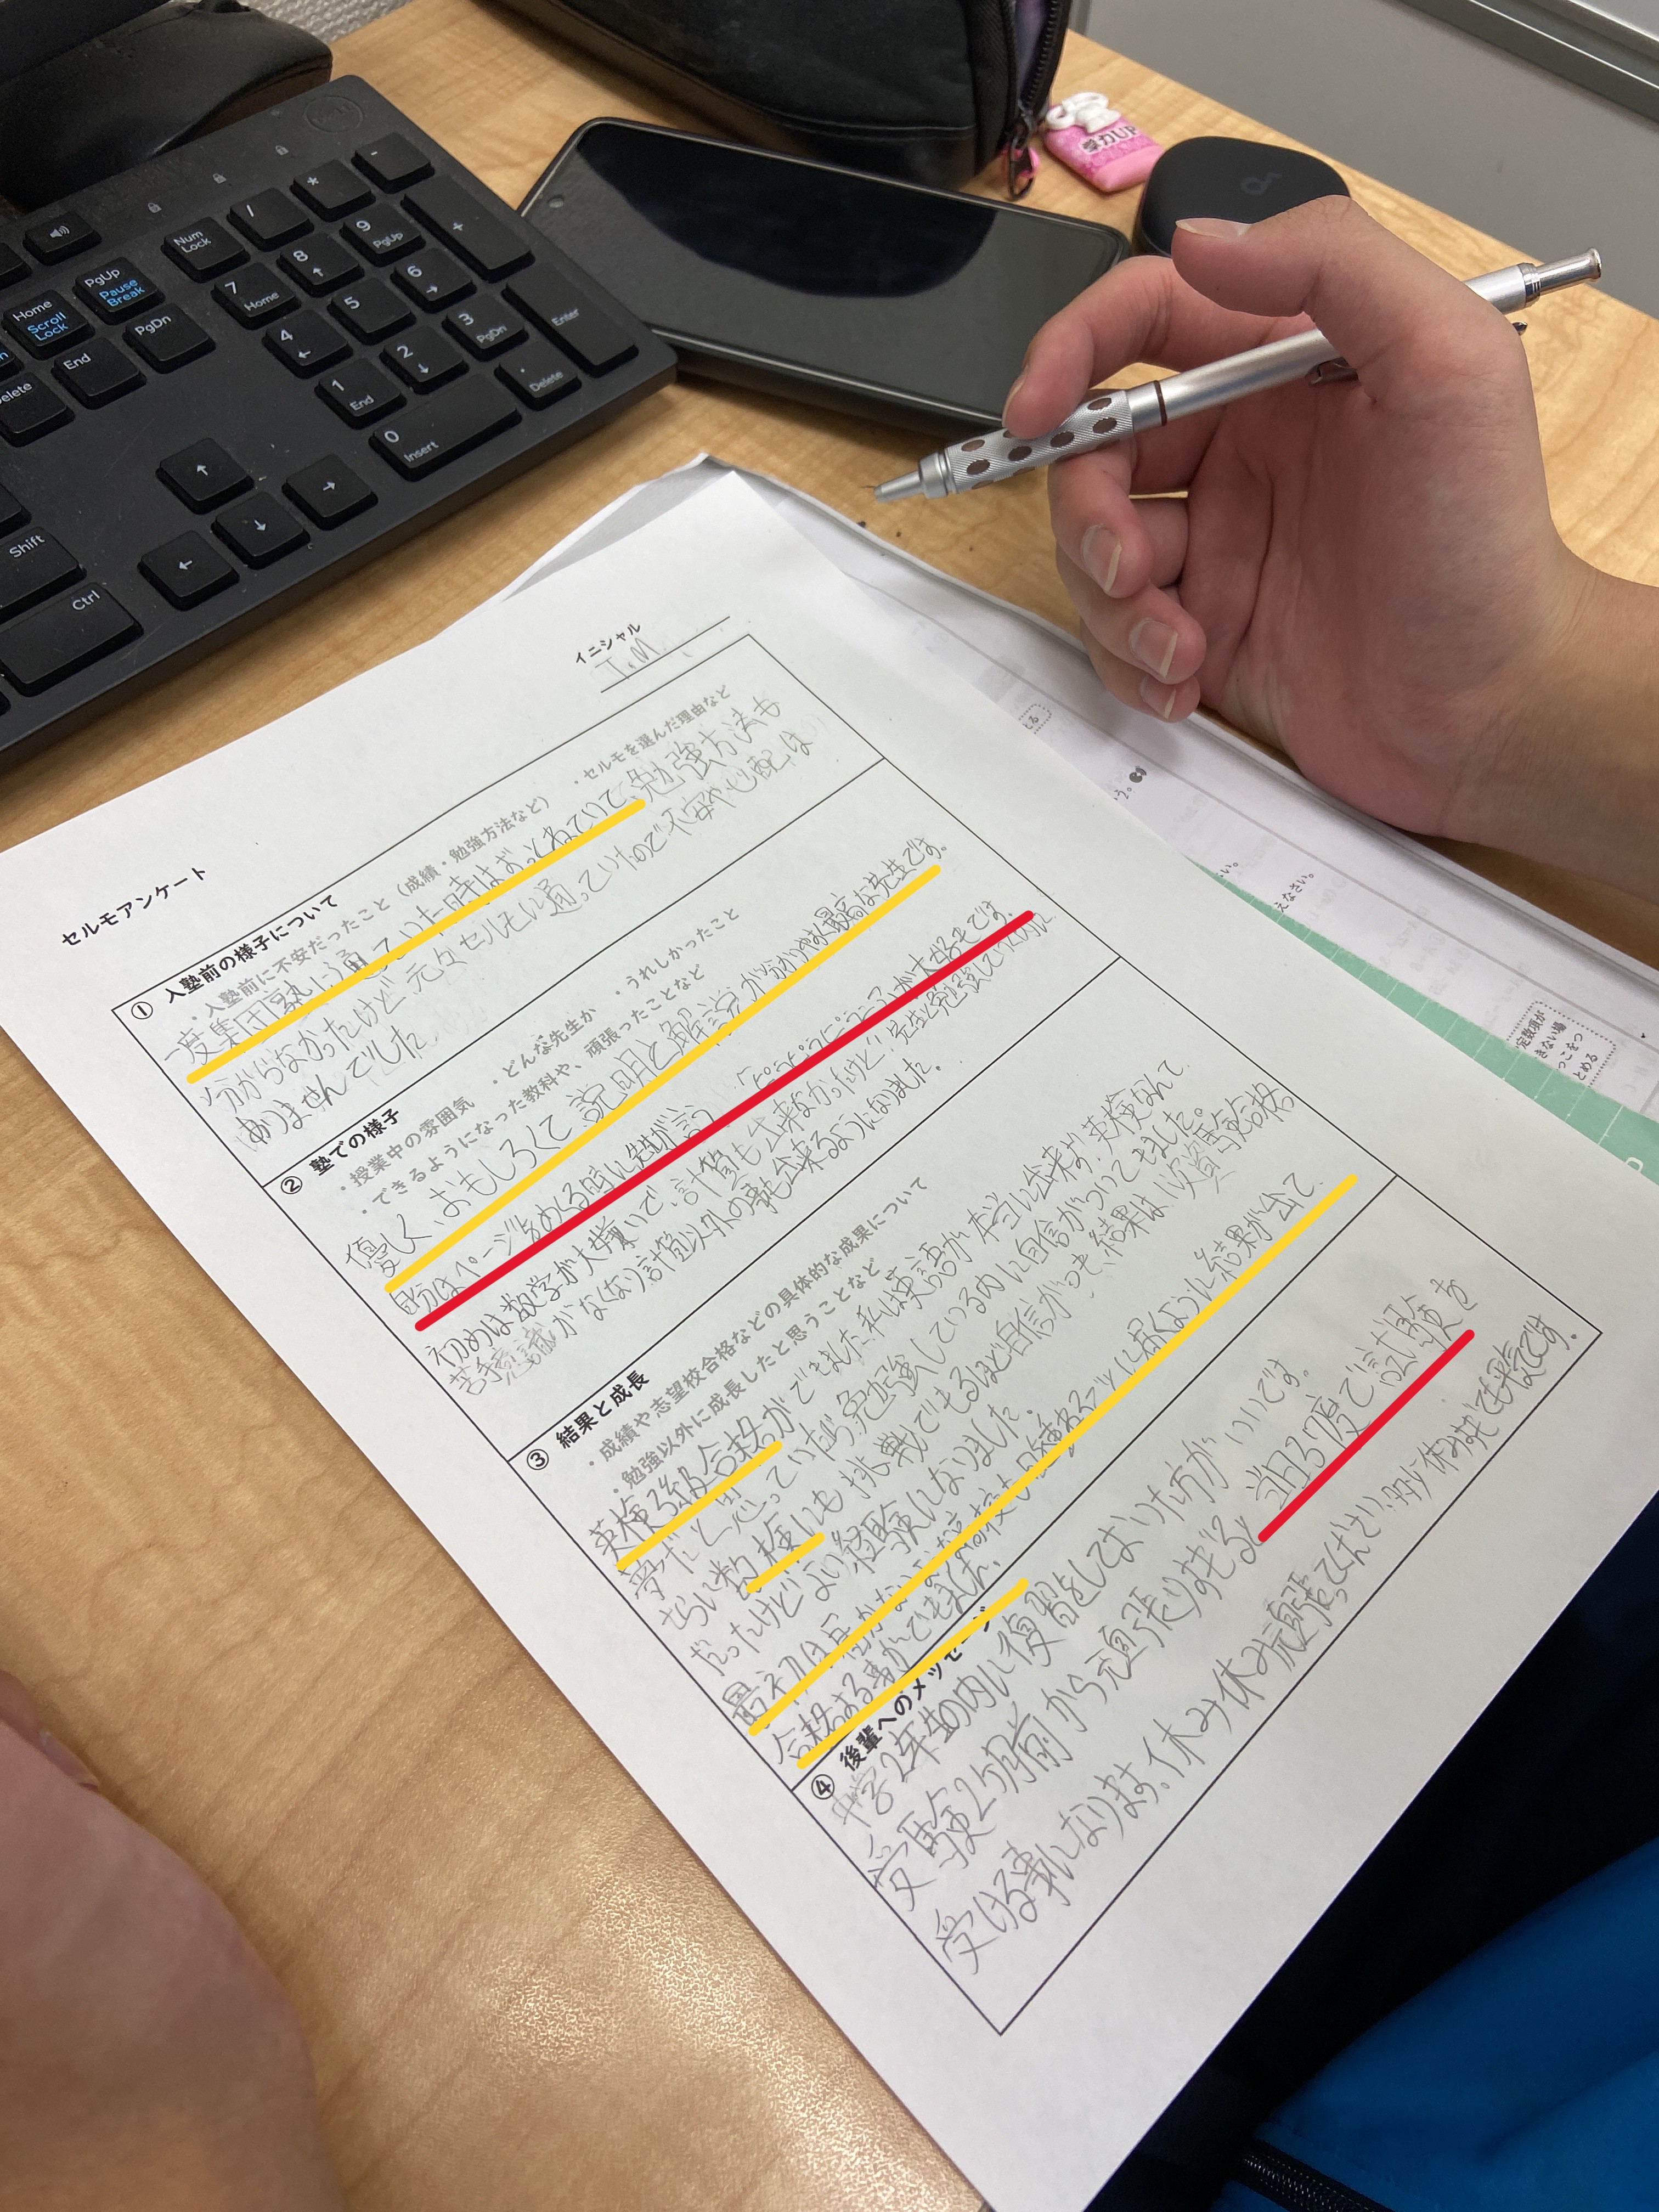 セルモアンケート
イニシャル
T.M
① 入塾前の様子について
・入塾前に不安だったこと（成績・勉強方法など） ・セルモを選んだ理由など
一度集団塾に通っていた時はずっとねていて、勉強方法も
分からなかったけど、元々セルモに通っていたので不安や心配は
ありませんでした。
② 塾での様子
・授業中の雰囲気 ・どんな先生か ・うれしかったこと
・できるようになった教科や、頑張ったことなど
優しく、おもしろくて、説明と解説が分かりやすく最高な先生です。
自分はページをめくる時に先生が言う が大好きです。
初めは数学が大嫌いで、計算も出来なかったけど、先生と勉強していく内に
苦手意識がなくなり計算以外の事も出来るようになりました。
③ 結果と成長
・成績や志望校合格などの具体的な成果について
・勉強以外に成長したと思うことなど
英検3級合格ができました。私は英語が本当に出来ず、英検なんて
と思っていたら、勉強している内に自信がついてきました。
さらに 検にも挑戦できるほど自信がつき、結果は1次 合格
だったけどよい経験になりました。
最初は届かないような高校も 届くように結果が出て、
合格する事ができました。
④ 後輩へのメッセージ
中学2年生の内に復習をしておいた方がいいです。
受験2ヶ月前から頑張りすぎると 当日37度で試験を
受ける事になります。休み休み頑張ってください。 休みすぎても平気です。
Num Lock
/
*
-
+
7 Home
8
9 PgUp
4
5
6
1 End
2
3 PgDn
0 Insert
. Delete
Enter
Home Scroll Lock
PgUp Pause Break
End
PgDn
Delete
Shift
Ctrl
DELL
定数項が
きない場
とめる
えなさい。